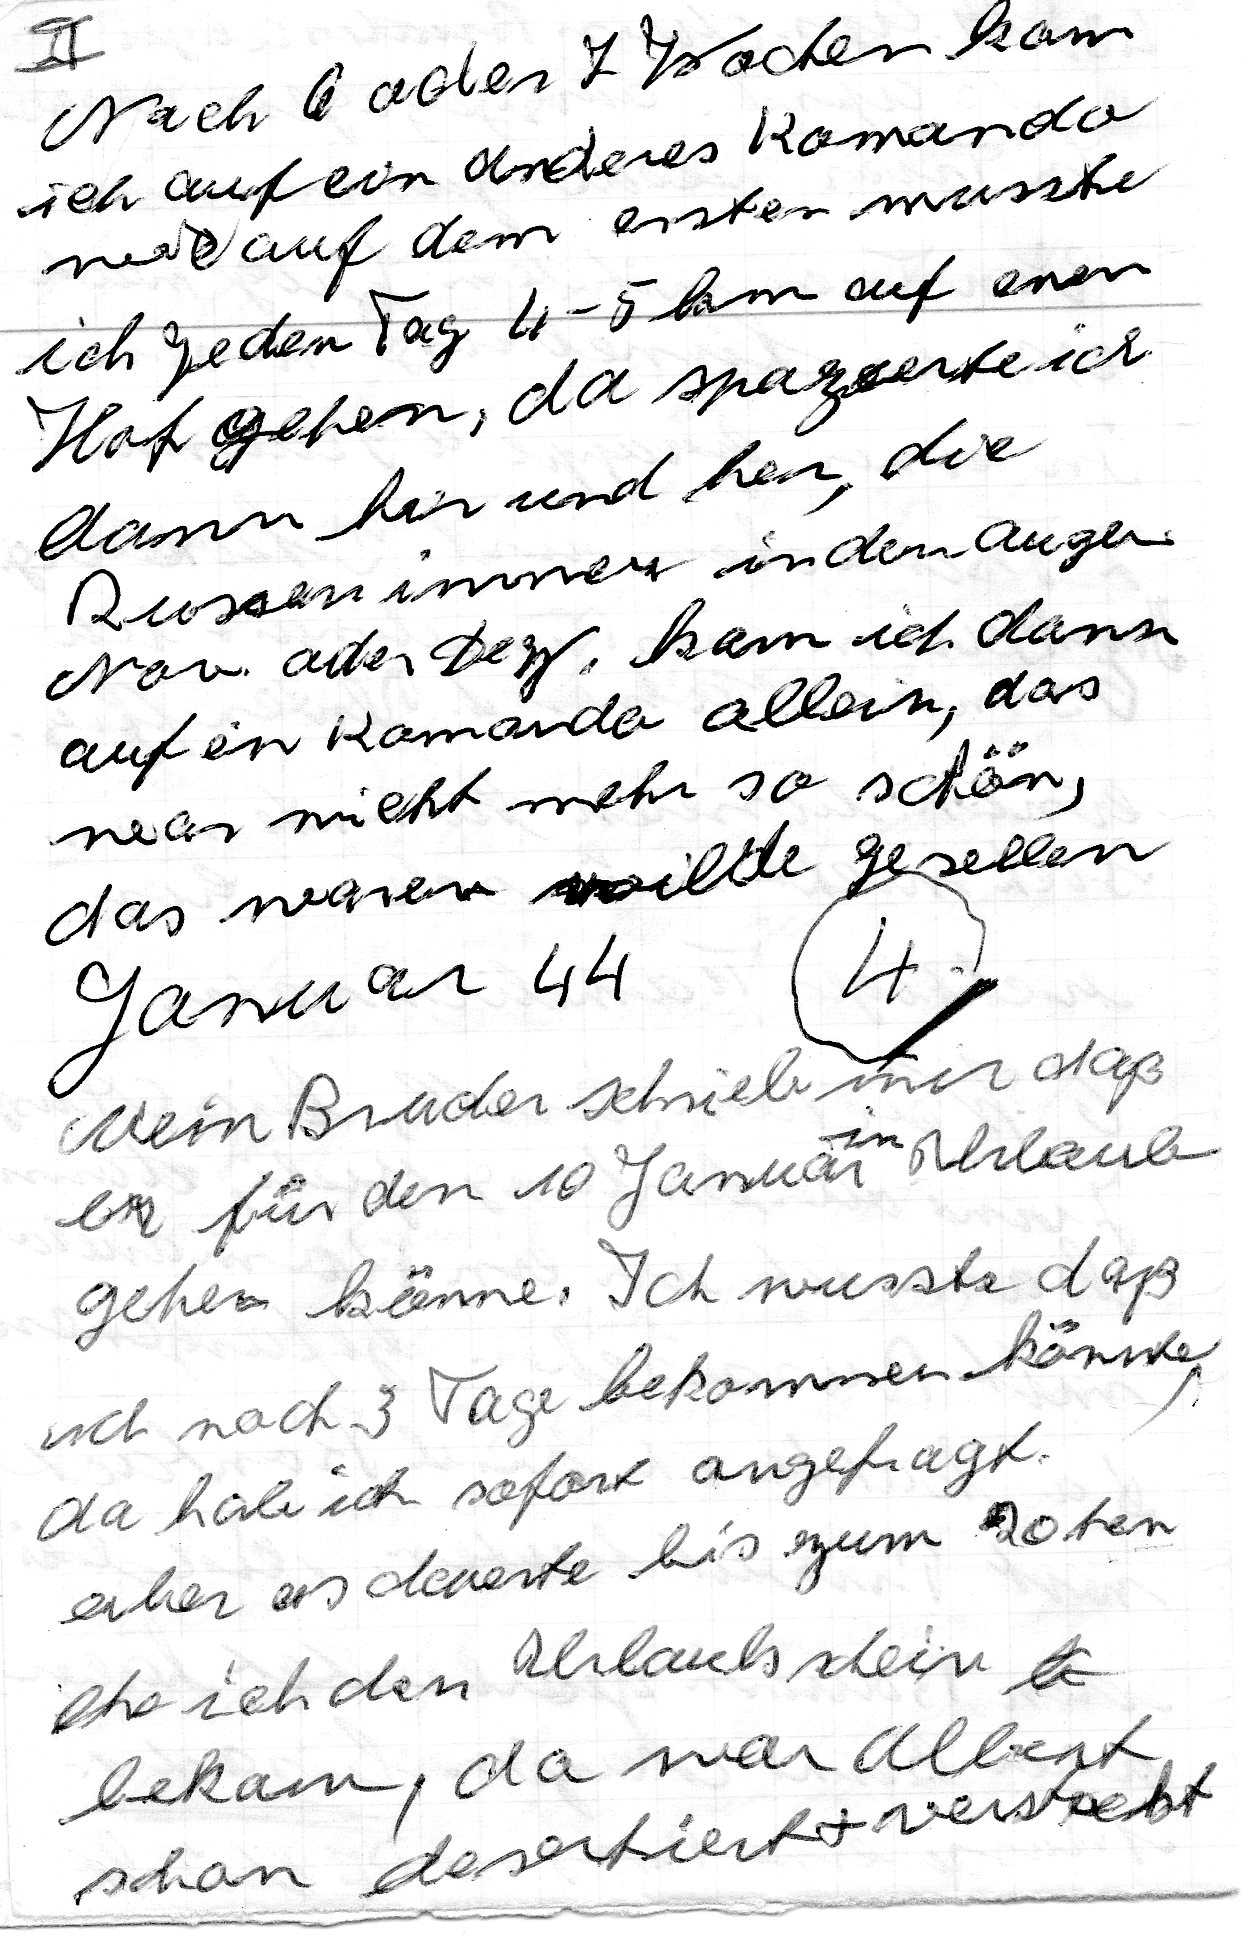 II
Nach 6 oder 7 Wochen kam
ich auf ein anderes Komando
auf dem ersten musste
ich jeden Tag 4-5 km auf enen
Hof gehen, da spazierte ich
dann hin und her, die
Russen immer in den augen
Nov. oder Dez. kam ich dann
auf ein Komando allein, das
war nicht mehr so schön,
das waren wilde gesellen
Januar 44 4.
Mein Bruder schrieb mir daß
er für den 10 Januar in Urlaub
gehen könne. Ich wusste daß
ich noch 3 Tage bekommen könnte,
da habe ich sofort angefragt.
aber es dauerte bis zum 20ten
ehe ich den Urlaubschein
bekam, da war Albert
schon desertiert + versteckt